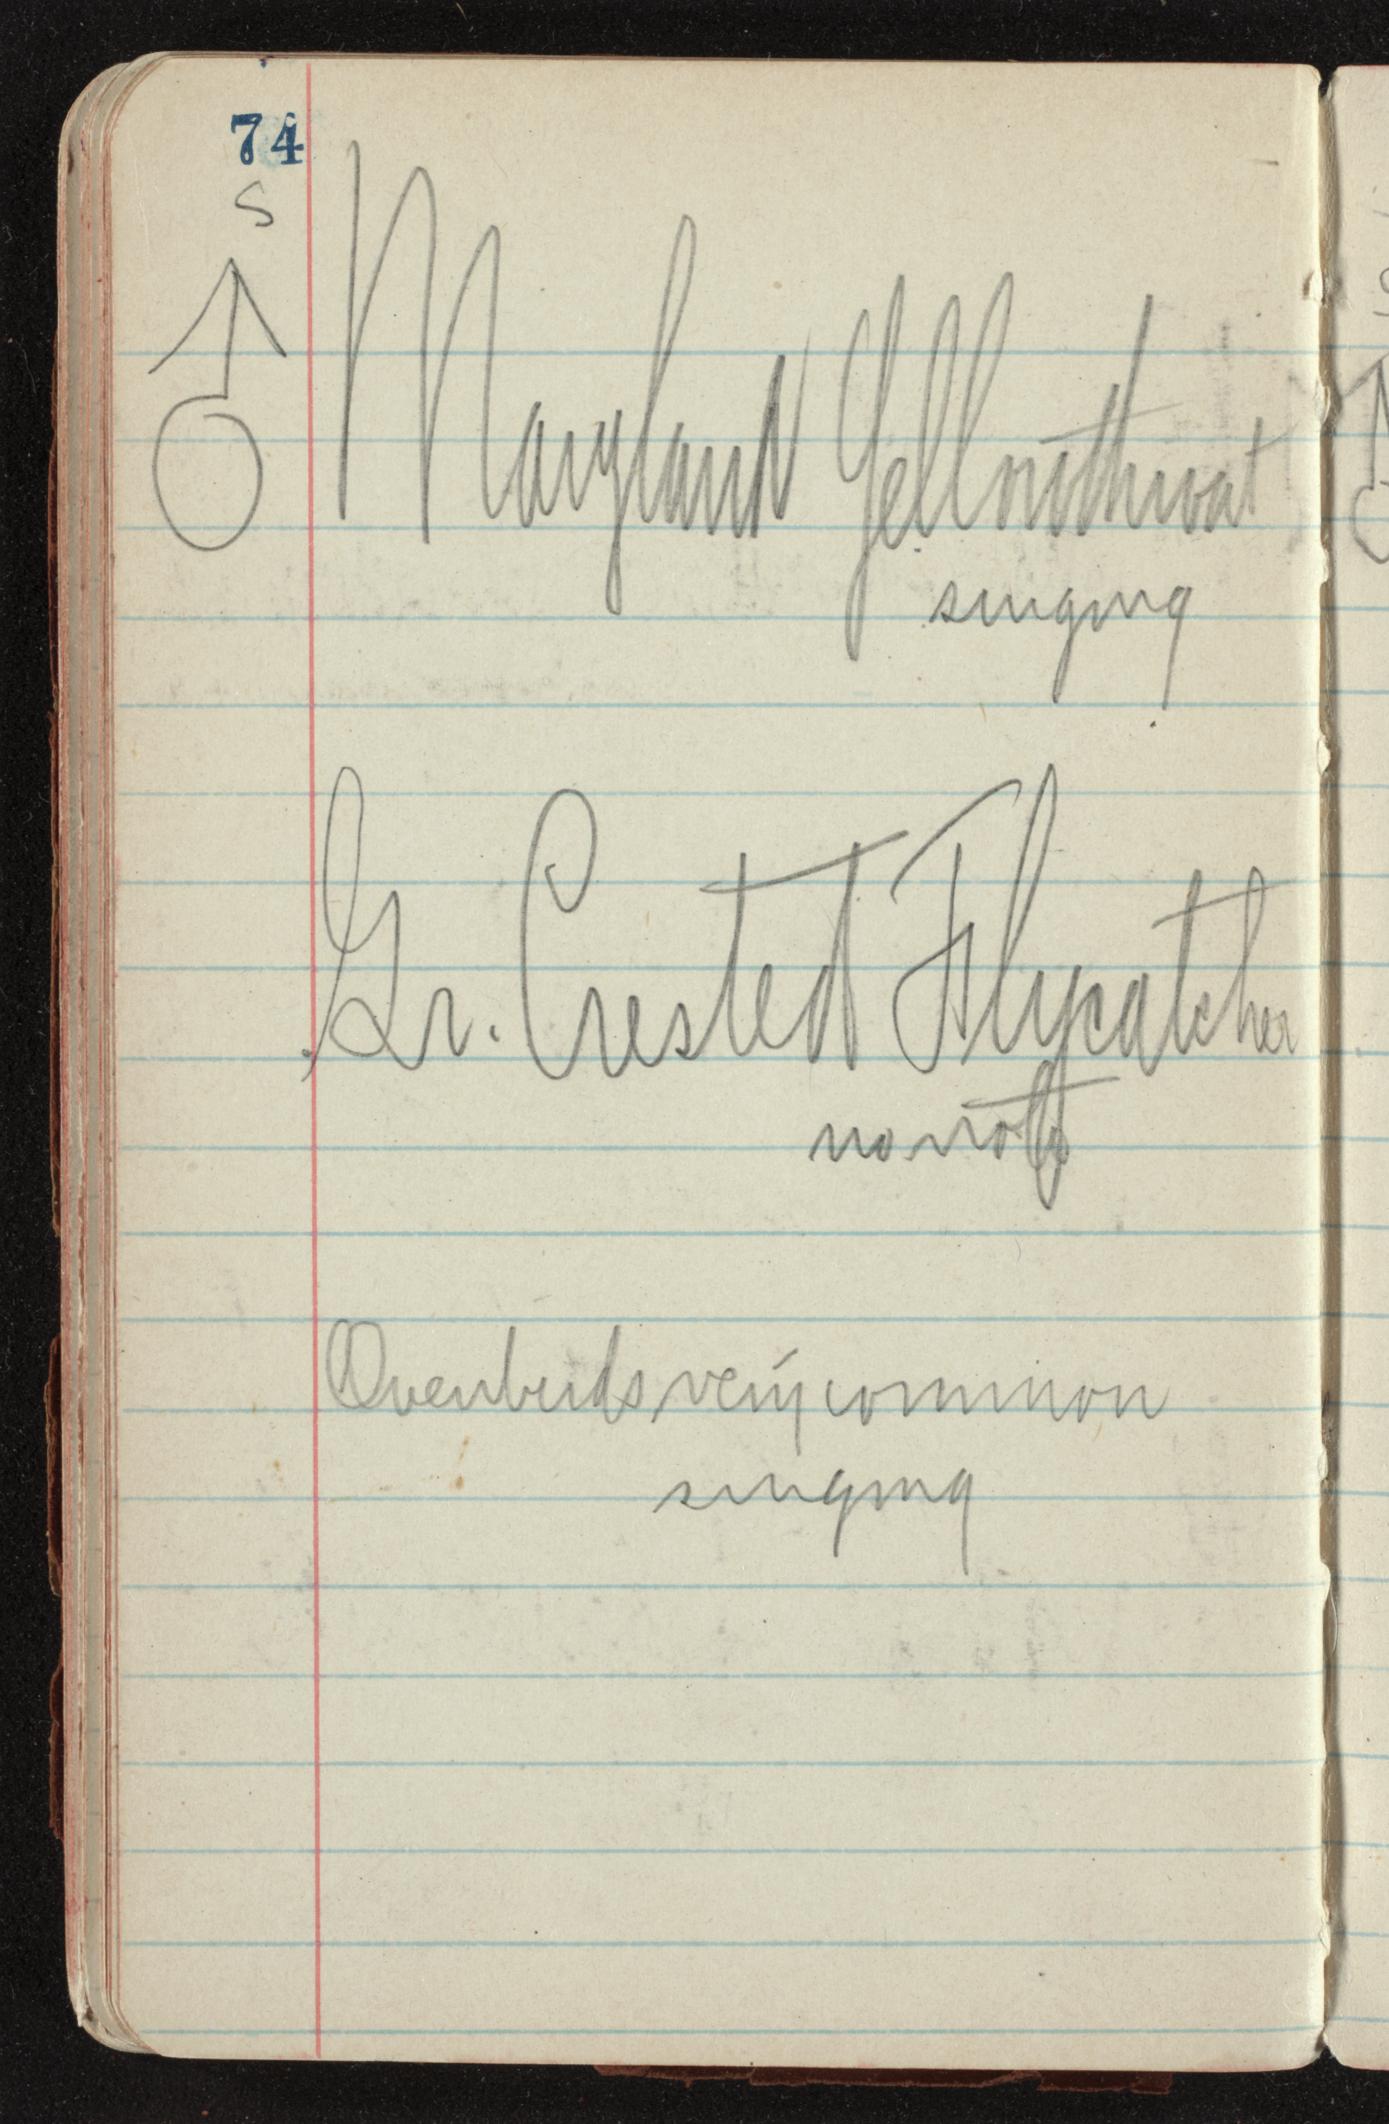 74
S
♂ Maryland Yellowthroat
singing
Gr. Crested Flycatcher
no note
Ovenbirds very common
singing